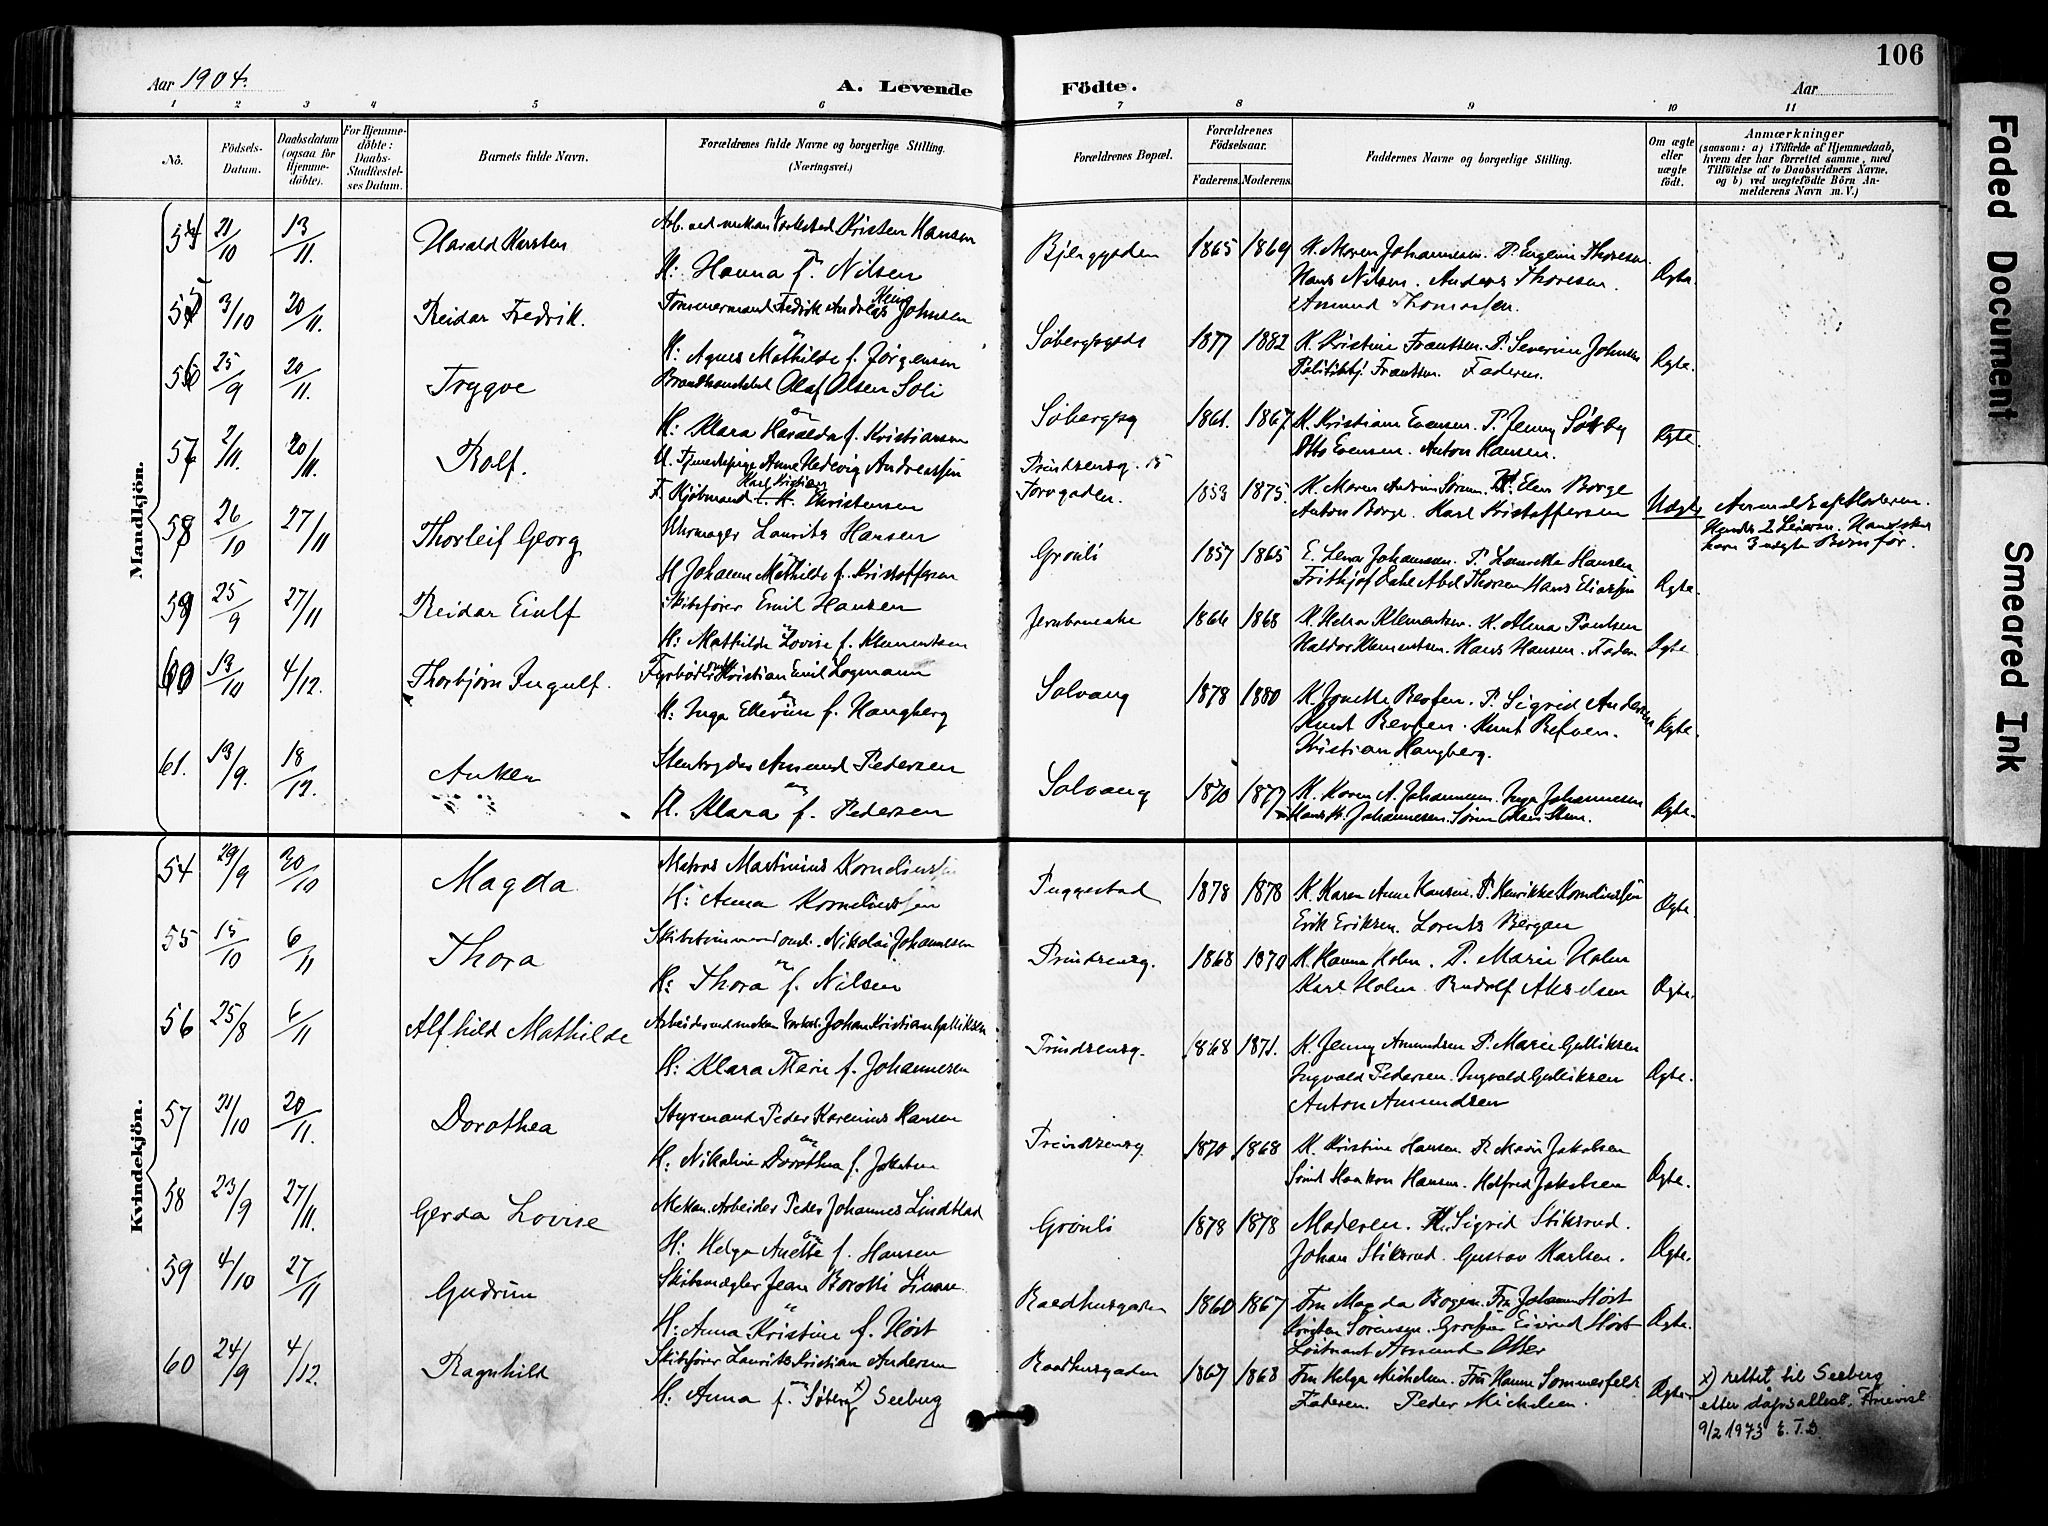 106
Aar 1904.
A. Levende Födte.
Aar
1 2 3 4 5 6 7 8 9 10 11
Nô.
Födsels-Datum.
Daabsdatum (ogsaa for Hjemme-döbte).
For Hjemme-döbte: Daabs-Stadfæstel-ses Datum.
Barnets fulde Navn.
Forældrenes fulde Navne og borgerlige Stilling. (Næringsvei.)
Forældrenes Bopæl.
Forældrenes Födselsaar.
Faderens. Moderens.
Faddernes Navne og borgerlige Stilling.
Om ægte eller uægte födt.
Anmærkninger
(saasom: a) i Tilfælde af Hjemmedaab, hvem der har forrettet samme, med Tilföielse af to Daabsvidners Navne, og b) ved uægtefödte Börn An-melderens Navn m. V.)
Mandkjön.
54 21/10 13/11 Harald Karsten Arb. ved mekan Værksted Kristen Hansen
H: Hanna f. Nilsen
Bjerggaden 1865 1869 K. Maren Johannesen. P. Eugenie Thoresen.
Hans Nilsen. Anders Thoresen.
Amund Thomassen. Ægte.
55 3/10 20/11 Reidar Fredrik. Tømmermand Fredrik Andreas Johnsen
H: Agnes Mathilde f. Jørgensen
Søbergsgade 1877 1882 K. Kristine Frantsen. P. Severine Johnsen
Politibtj. Frantsen. Faderen. Ægte.
56 25/9 20/11 Trygve Brandkonstabel Olaf Olsen Soli
H: Klara Haralda f. Kristiansen
Søbergsg 1861. 1867. K. Kristiane Evensen. P. Jenny Søtby
Otto Evensen. Anton Hansen. Ægte.
57 2/11. 20/11. Rolf. U. Tjenestepige Anne Hedvig Andreassen
F. Kjøbmand Karl Kristian Christensen
Prindsensg. 15
Torvgaden. 1853 1875. K. Maren Andrine Sørum. P. Elen Borge
Anton Borge. Karl Kristoffersen Uægte Anmeldt af Moderen.
Hendes 2 Leierm. Han skal
have 3 uægte Børn før.
58 26/10 27/11 Thorleif Georg Uhrmager Laurits Hansen
H Johanne Mathilde f. Kristoffersen
Grønli 1857 1865 E. Lena Johannesen. P. Lauretta Hansen
Frithjof Dahl Abel Thorsen Hans Eliassen Ægte.
59 25/9 27/11 Reidar Eiulf Skibsfører Emil Hansen
H: Mathilde Lovise f. Klementsen
Jernbanealle 1866 1868 K. Helna Klementsen. K. Alma Paulsen
Haldor Klementsen. Hans Hansen. Faderen Ægte.
60 13/10 4/12. Thorbjørn Ingulf. Fyrbøder Kristian Emil Logmann
H: Inga Ellevine f. Haugberg
Solvang 1878 1880 K. Jonette Berfen. P. Sigrid Andersen
Knut Berfen. Knut Befven.
Kristian Haugberg. Ægte.
61. 13/9. 18/12. Anker Stenhugger Amund Pedersen
H. Klara f. Pedersen
Solvang 1870 1877 K. Karen A. Johannesen. Inga Johannesen
Hans K. Johannesen. Sørine Olava Stene. Ægte.
Kvindekjön.
54 29/9 30/10 Magda Matros Martinius Korneliussen
H: Anna Korneliussen
Tuggestad 1878 1878 K. Karen Anne Hansen. P. Henrikke Korneliussen
Erik Eriksen. Lorents Bergan Ægte.
55 15/10 6/11 Thora Skibstømmermand. Nikolai Johannesen
H: Thora f. Nilsen
Prindsensg. 1868 1870 K. Hanna Holm. P. Marie Holm
Karl Holm. Rudolf Akselsen Ægte.
56 25/8 6/11 Alfhild Mathilde Arbeider ved mekan Værkst. Johan Kristian Gulliksen
H: Klara Marie f. Johannesen
Prindsensg. 1868 1871. K. Jenny Amundsen P. Marie Gulliksen
Ingvald Pedersen. Ingvald Gulliksen
Anton Amundsen Ægte.
57 21/10 20/11. Dorothea Styrmand Peder Karenius Hansen
H. Nikoline Dorothea f. Jakobsen
Prindsensg 1870 1868 K. Kristine Hansen. P. Marie Jakobsen
Sømd Haakon Hansen. Helfred Jakobsen Ægte.
58 23/9 27/11. Gerda Lovise Mekan. Arbeider Peder Johannes Lindblad
H: Helga Anette f. Hansen
Grønli 1878 1878 Moderen. K. Sigrid Stiksrud.
Johan Stiksrud. Gustav Karlsen. Ægte.
59 4/10 27/11 Gudrun Skibsmægler Jean Borotti Linaae
H: Anna Kristine f. Høst
Raadhusgaden 1860 1867 Fru Magda Bogen. Fru Johanne Høst
Kristen Sørensen. Grosserer Eivind Høst
Løitnant Amund Olser Ægte.
60 24/9 4/12. Ragnhild Skibsfører Laurits Kristian Andersen
H: Anna f. Søberg x) Seeberg
Raadhusgaden 1867 1868 Fru Helga Michelsen. Fru Hanna Sommerfelt
Faderen. Peder Michelsen. Ægte. x) rettet til Seeberg
etter dåpsattest. Fremvist
9/2 1973 E.T.D.
Faded Document
Smeared Ink